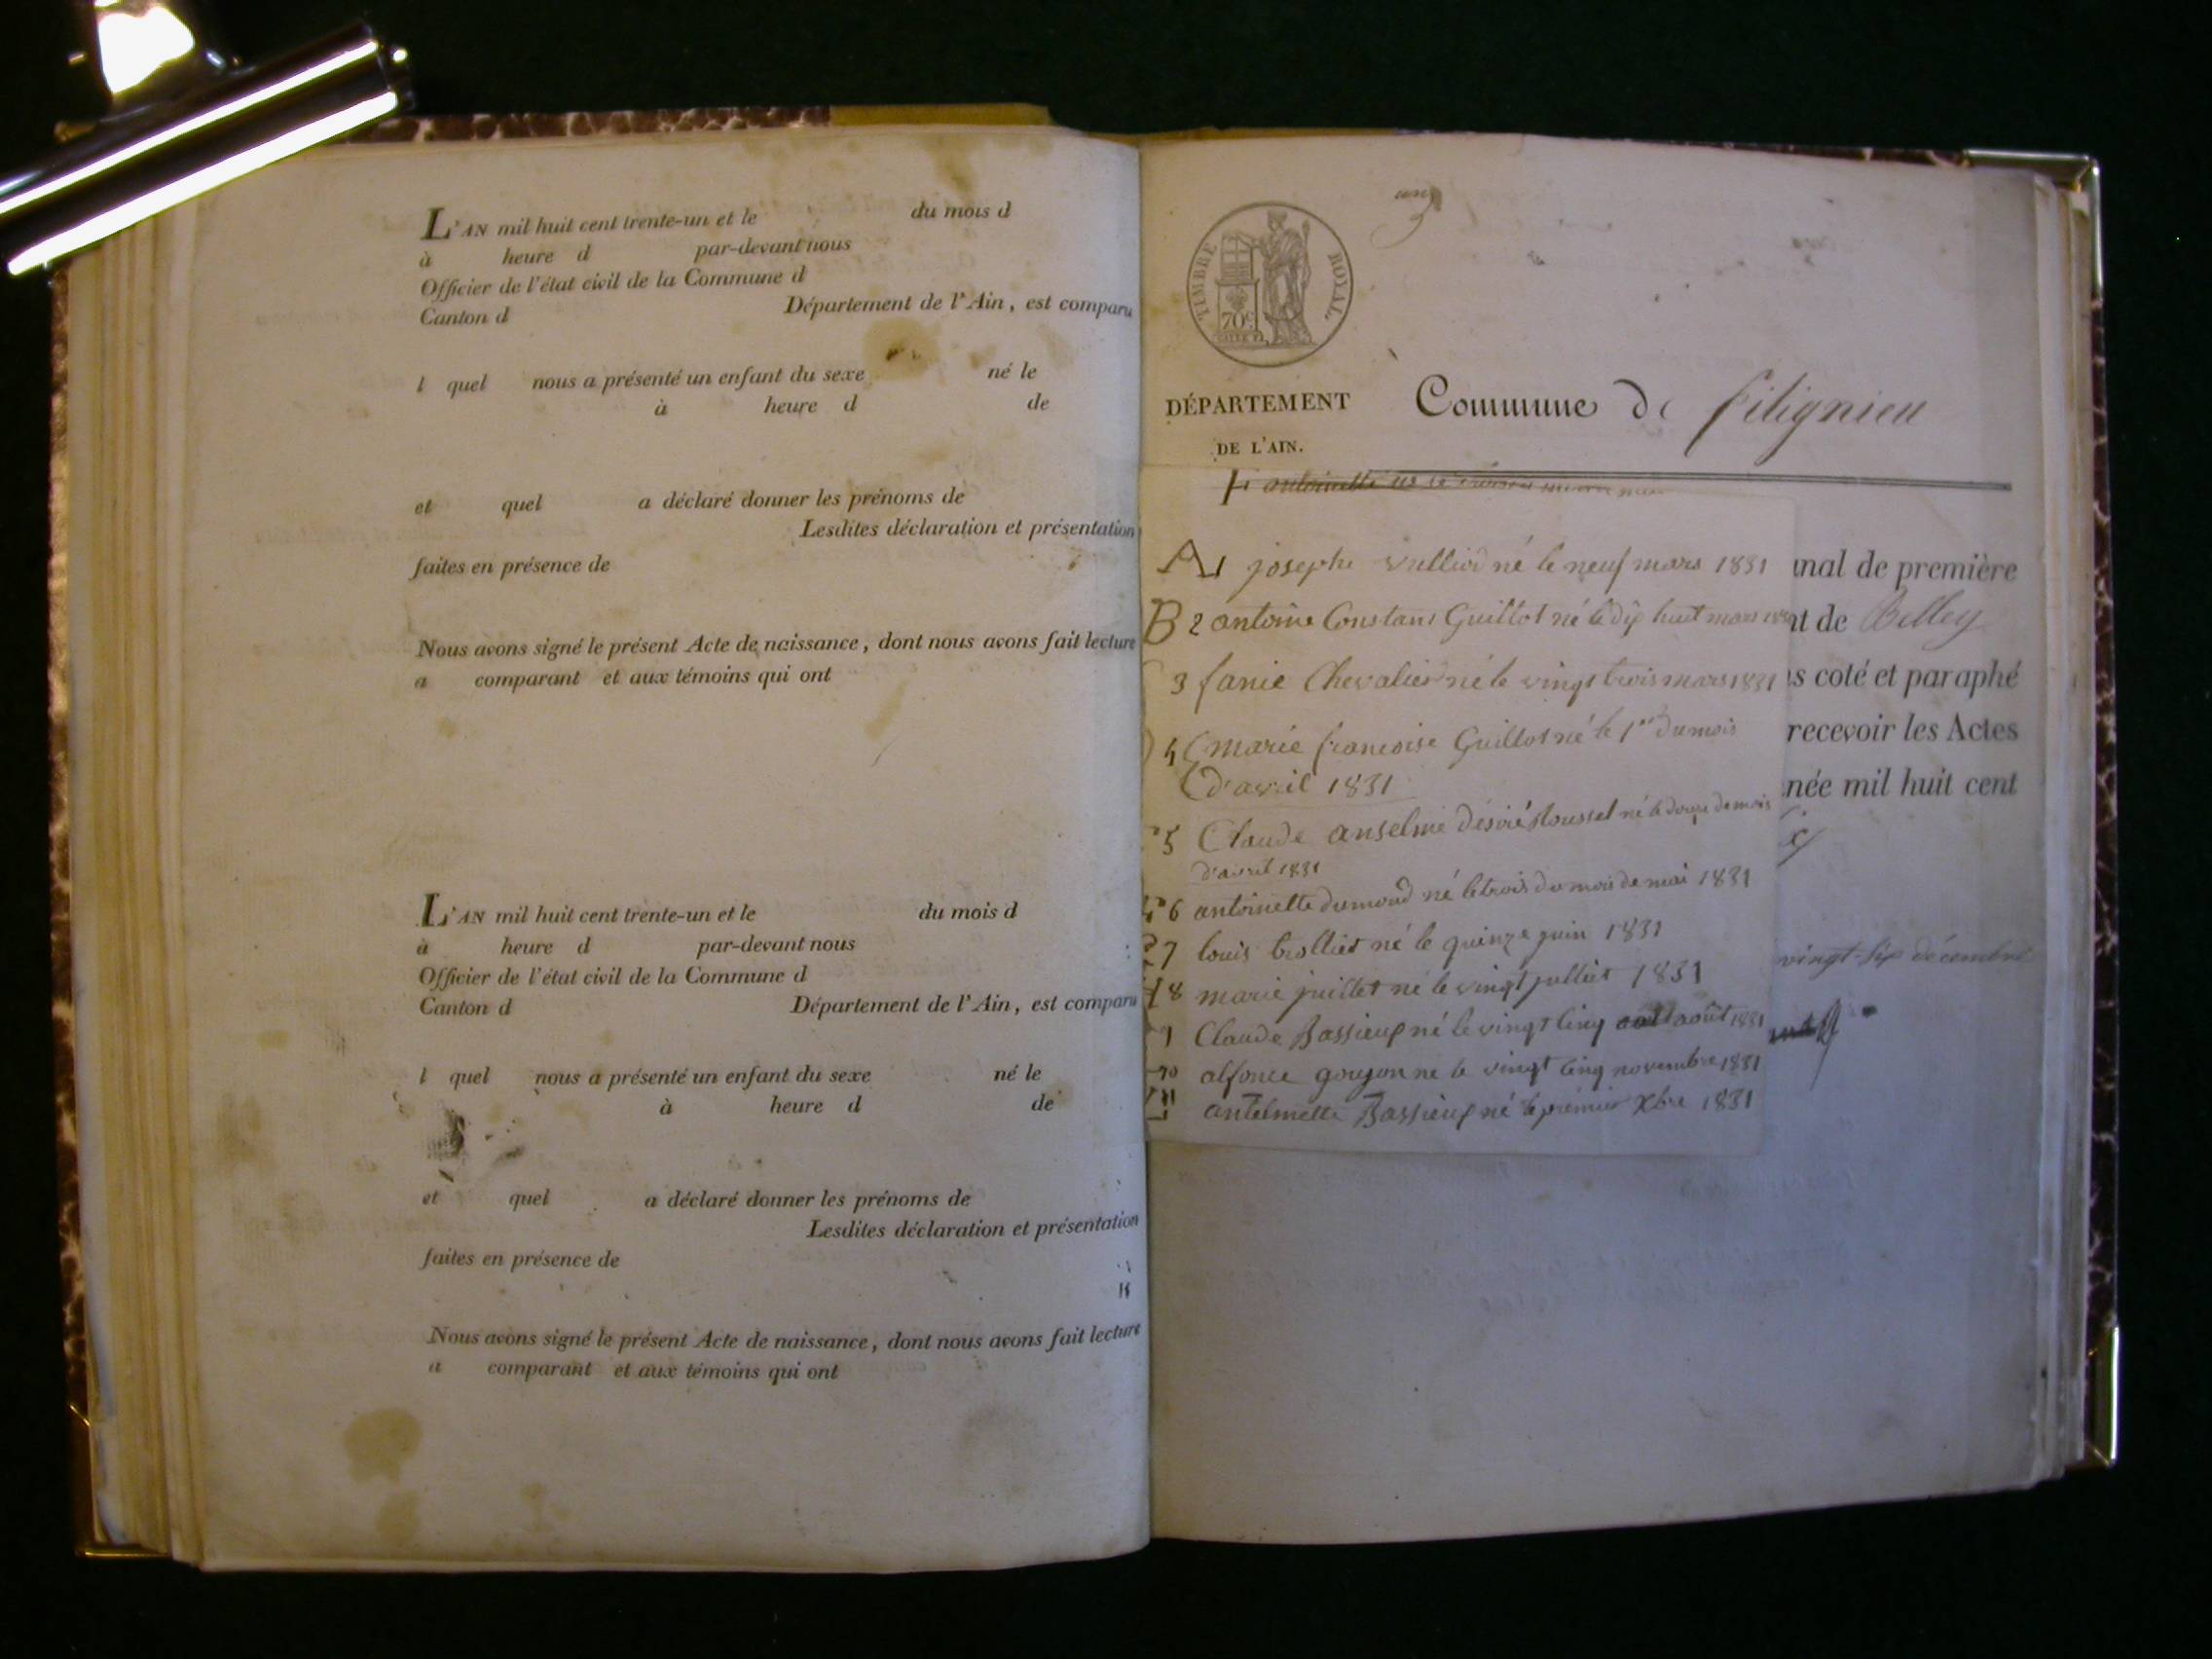 L'AN mil huit cent trente-un et le du mois d
à heure d par-devant nous
Officier de l'état civil de la Commune d
Canton d Département de l'Ain, est comparu
l quel nous a présenté un enfant du sexe né le
à heure d de
et quel a déclaré donner les prénoms de
Lesdites déclaration et présentation
faites en présence de
Nous avons signé le présent Acte de naissance, dont nous avons fait lecture
a comparant et aux témoins qui ont
L'AN mil huit cent trente-un et le du mois d
à heure d par-devant nous
Officier de l'état civil de la Commune d
Canton d Département de l'Ain, est comparu
l quel nous a présenté un enfant du sexe né le
à heure d de
et quel a déclaré donner les prénoms de
Lesdites déclaration et présentation
faites en présence de
Nous avons signé le présent Acte de naissance, dont nous avons fait lecture
a comparant et aux témoins qui ont
un
TIMBRE ROYAL.
70c
DÉPARTEMENT
DE L'AIN.
Commune de filignieu
antoinette
A 1 josephe vulliod né le neuf mars 1831
unal de première
B 2 antoine Constans Guillot né le dix huit mars
nt de Belley
3 fanie Chevalier né le vingt trois mars 1831
s coté et paraphé
4 marie francoise Guillot né le 1er du mois
recevoir les Actes
d'avril 1831
née mil huit cent
5 Claude anselme désiré Roussel né le douze du mois
d'avril 1831
6 antoinette dumond né le trois du mois de mai 1831
7 louis brollier né le quinze juin 1831
vingt-six décembre
8 marie juillet né le vingt julliet 1831
9 Claude Bassieux né le vingt cinq août 1831
10 alfonce goujon né le vingt cinq novembre 1831
11 antelmette Bassieux né le premier xbre 1831